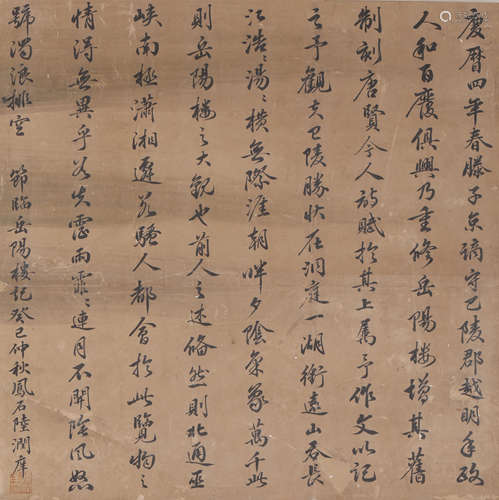 慶曆四年春滕子京謫守巴陵郡越明年政
人和百廢俱興乃重修岳陽樓增其舊
制刻唐賢今人詩賦於其上屬予作文以記
之予觀夫巴陵勝狀在洞庭一湖銜遠山吞長
江浩〻湯〻橫無際涯朝暉夕陰氣象萬千此
則岳陽樓之大觀也前人之述備然則北通巫
峽南極瀟湘遷客騷人都會於此覽物之
情得無異乎若夫霪雨霏〻連月不開陰風怒
號濁浪排空 節臨岳陽樓記癸巳仲秋鳳石陸潤庠